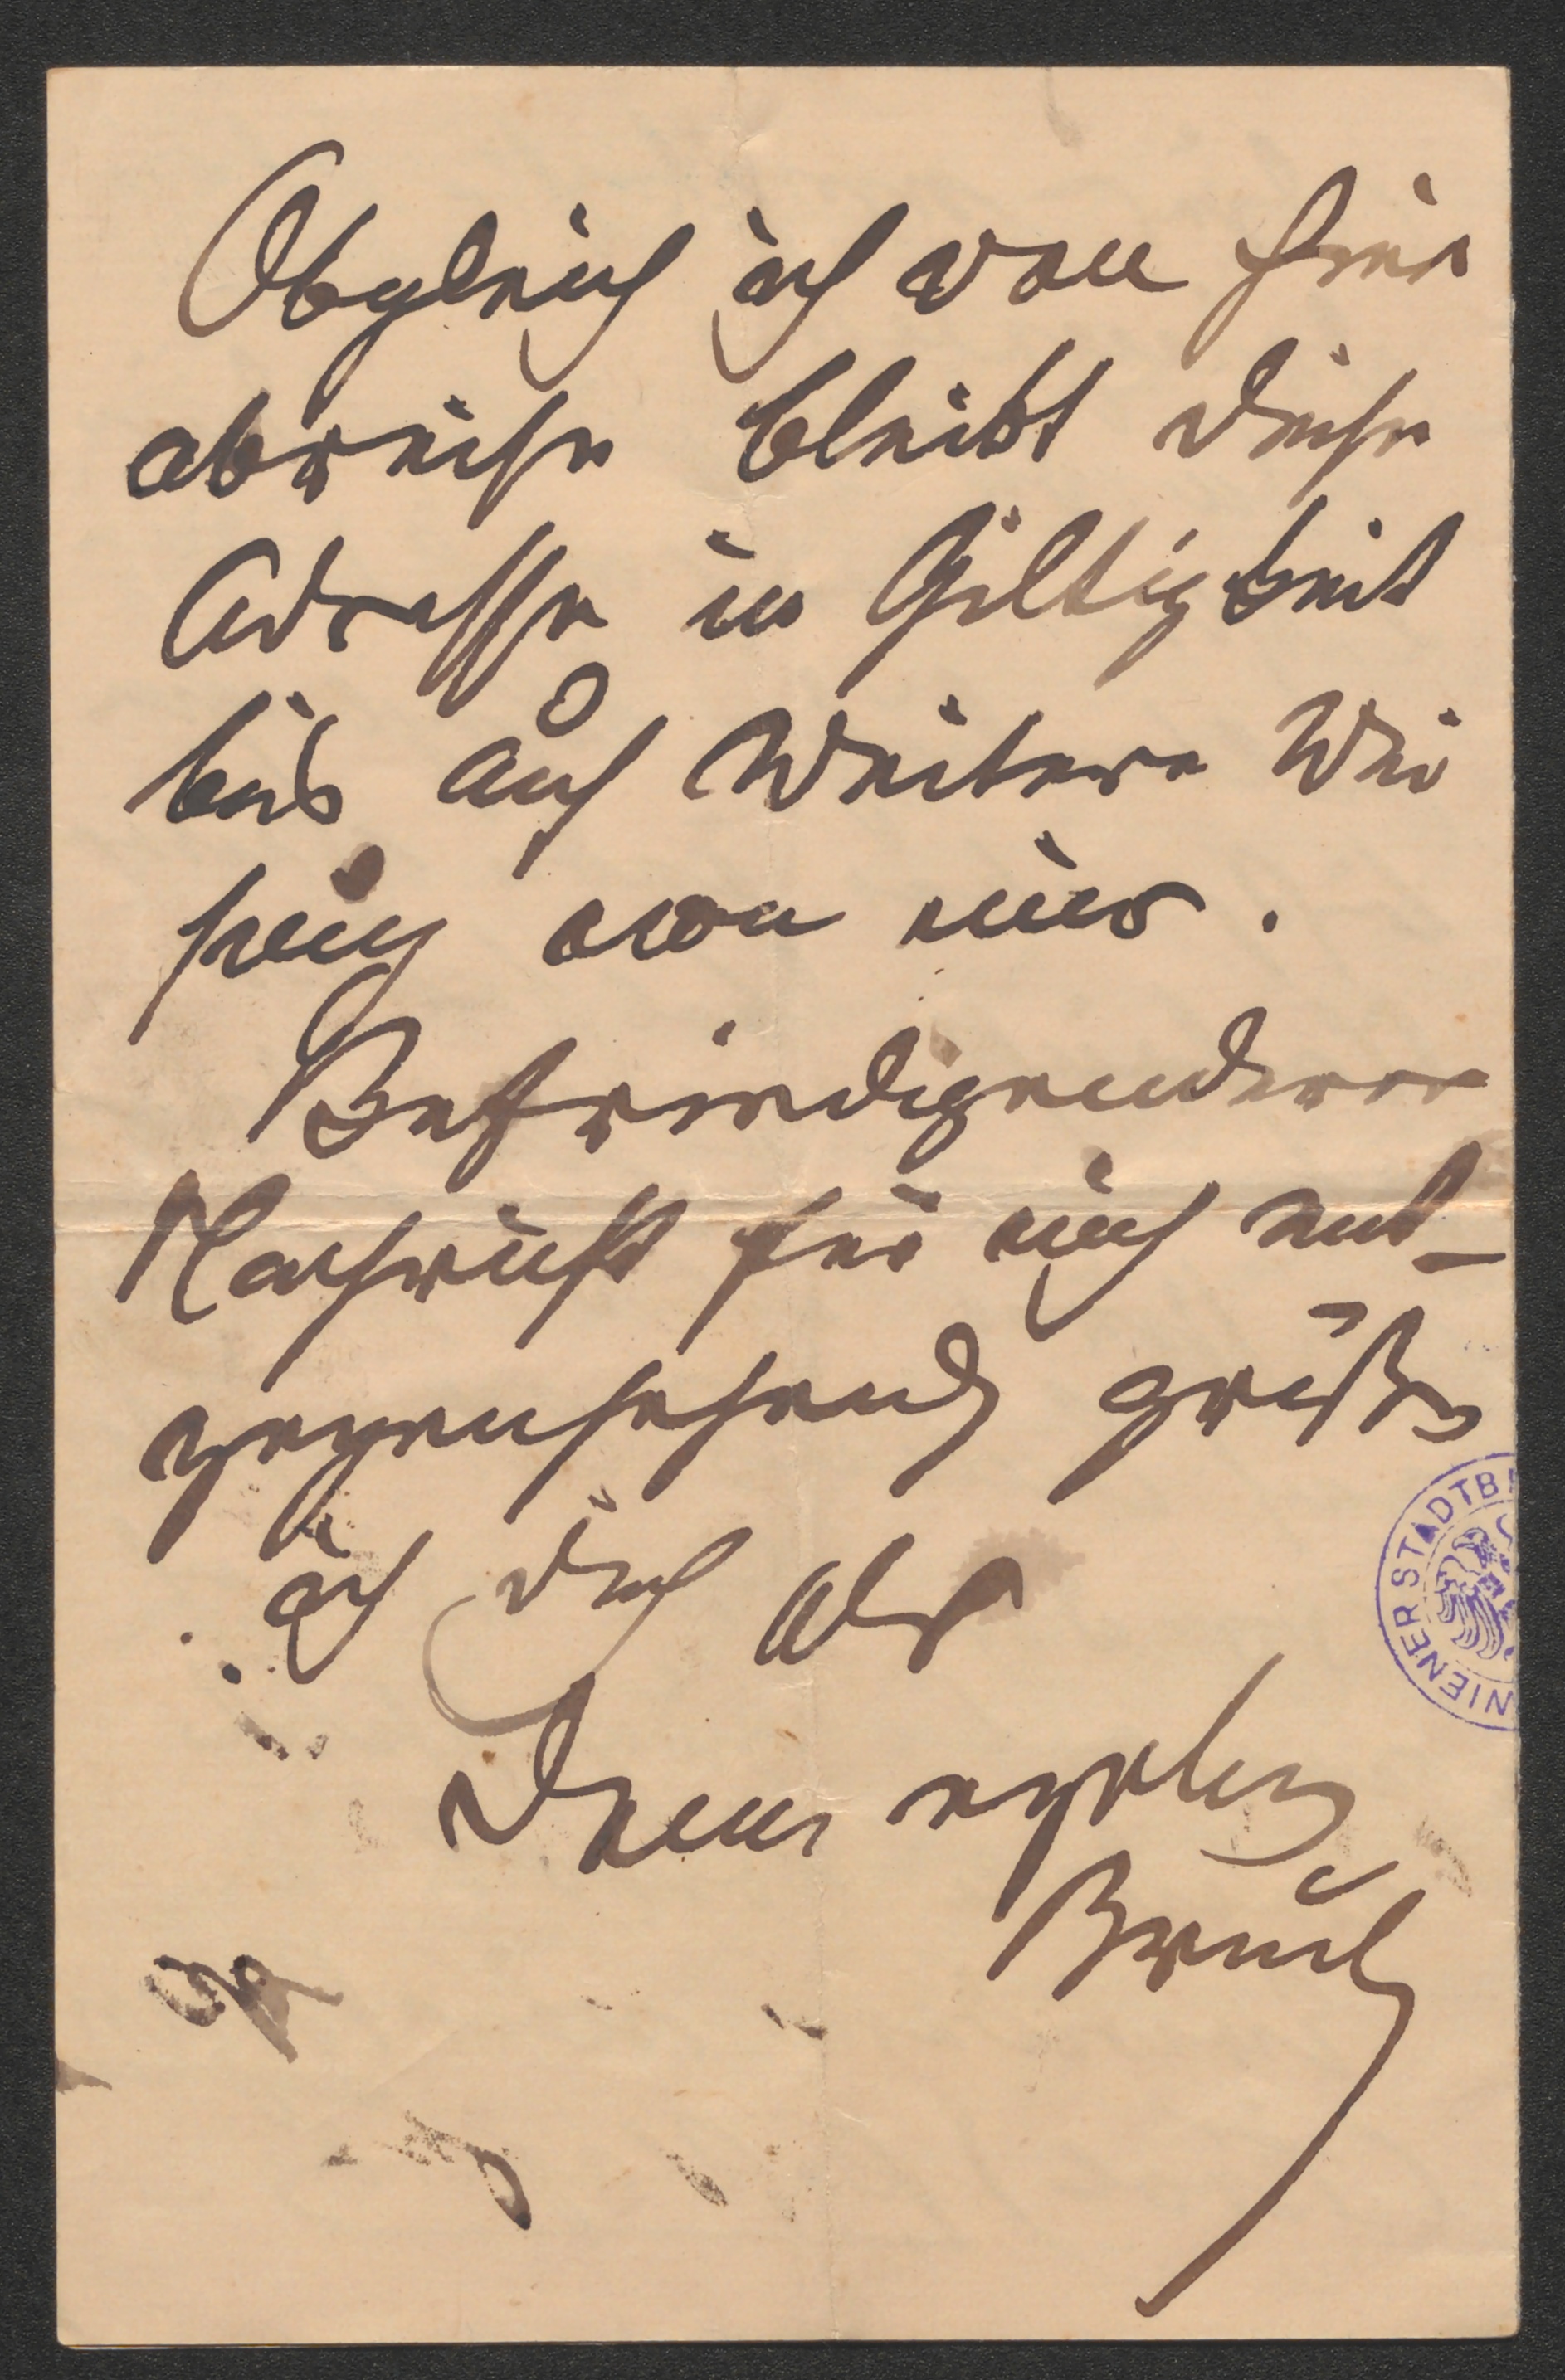 Obgleich ich von hier
abreise bleibt diese
Adresse in Giltigkeit
bis auf weitere Wei
sung von mir.
Befriedigenderer
Nachricht für mich ent-
gegensehend grüße
ich Dich als
Dein ergeben
Bruck
WIENER STADTB